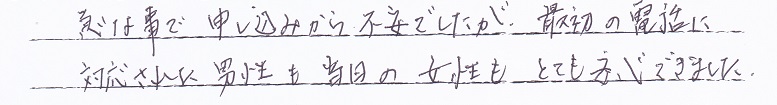 急な事で 申し込みから不安でしたが、最初の電話に
対応された男性も当日の女性もとても安心できました。